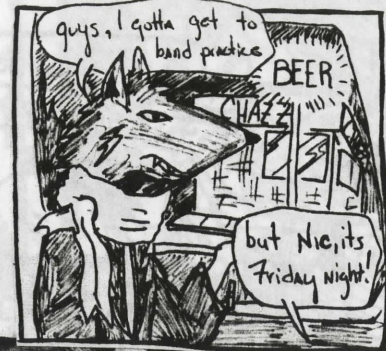 guys, I gotta get to
band practice
BEER
CHAZZ
but Nic, its
Friday night!